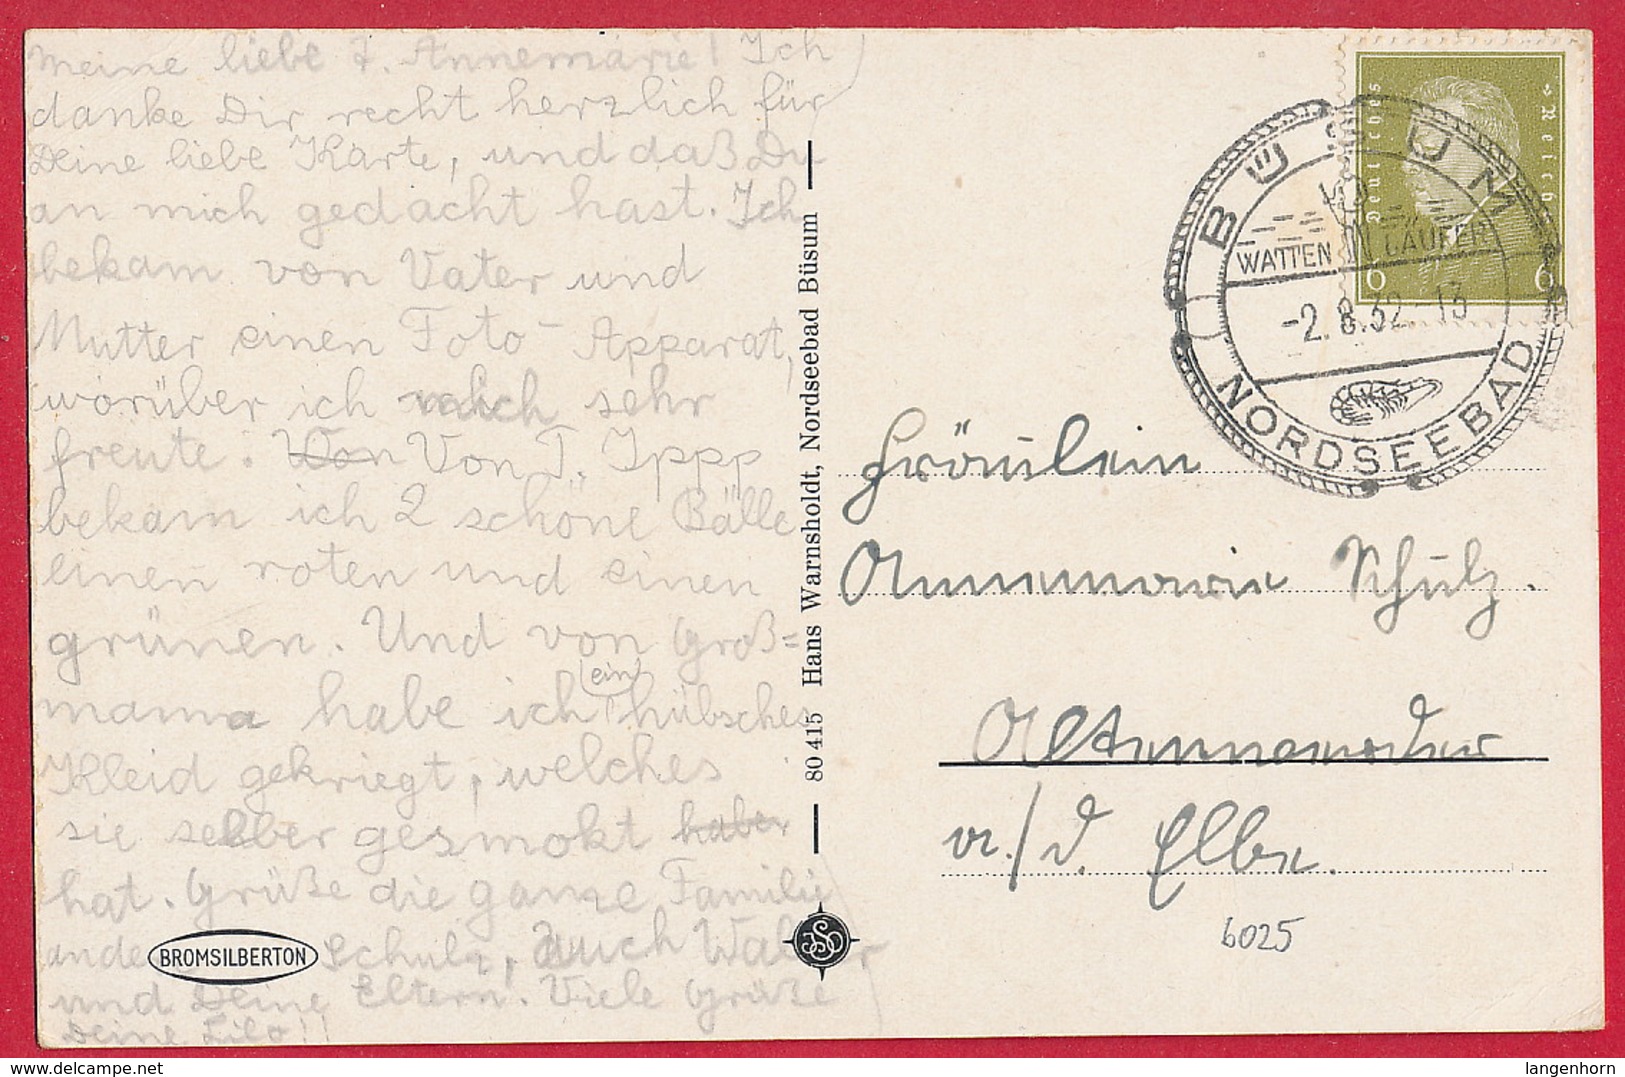 Meine liebe T. Annemarie! Ich
danke Dir recht herzlich für
Deine liebe Karte, und daß Du
an mich gedacht hast. Ich
bekam von Vater und
Mutter einen Foto-Apparat,
worüber ich mich sehr
freute. Von Von T. Ippp
bekam ich 2 schöne Bälle
einen roten und einen
grünen. Und von Groß=
mama habe ich ein hübsches
Kleid gekriegt, welches
sie selber gesmokt haber
hat. Grüße die ganze Familie
Schulz, auch Walter
und Deine Eltern! Viele Grüße
Deine Lilo!!
BROMSILBERTON
80 415 Hans Warnsholdt, Nordseebad Büsum
Deutsches Reich
6 6
BÜSUM
WATTENLÄUFER
-2.8.32.-13
NORDSEEBAD
Fräulein
Annemarie Schulz.
Altennoerder
a./d. Elbe.
6025
delcampe.net
langenhorn